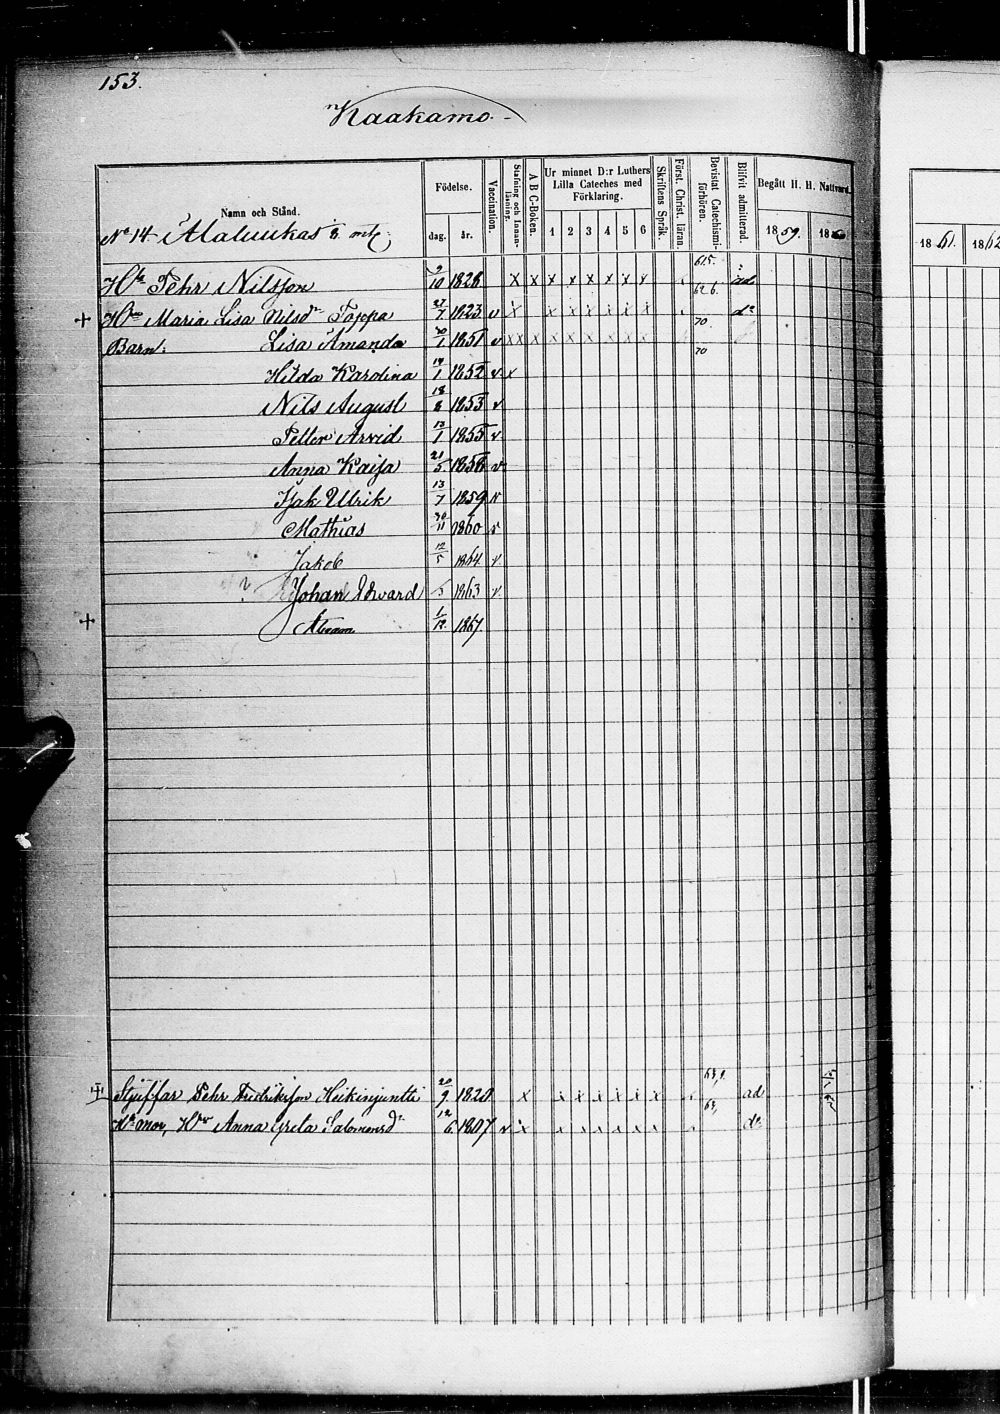 153.
Kaakamo.
Namn och Stånd.
Födelse.
dag. år.
Vaccination.
Stafning och Innanläsning.
A B C-Boken.
Ur minnet D:r Luthers Lilla Cateches med Förklaring.
1 2 3 4 5 6
Skriftens Språk.
Först. Christ. läran.
Bevistat Catechismiförhören.
Blifvit admitterad.
Begått H. H. Nattvard.
1859. 18
1861. 1862
No 14 Alaluukas
Pehr Nilsson 9/10 1828 x x x x x x x x 61.5. ad
+ Maria Lisa Nilsdr Toppa 27/7 1823 v x x x x x x x 62 6. do
Barn: Lisa Amanda 20/1 1851 v x x x x x x x x x 70
Hilda Karolina 19/1 1852 v x 70
Nils August 18/8 1853 v
Petter Arvid 13/1 1855 v
Anna Kajsa 21/5 1858 v
Isak Ulrik 13/7 1859 v
Mathias 30/11 1860 v
Jakob 12/5 1864 v
Johan Edvard /5 1863 v
+ Abram 1/12 1867.
Styffar Pehr Fredriksson Heikinjuntti 20/9 1820 x x x x x x x ad
mor, Anna Greta Salomonsdr 12/6 1807 v x x x x x x x do